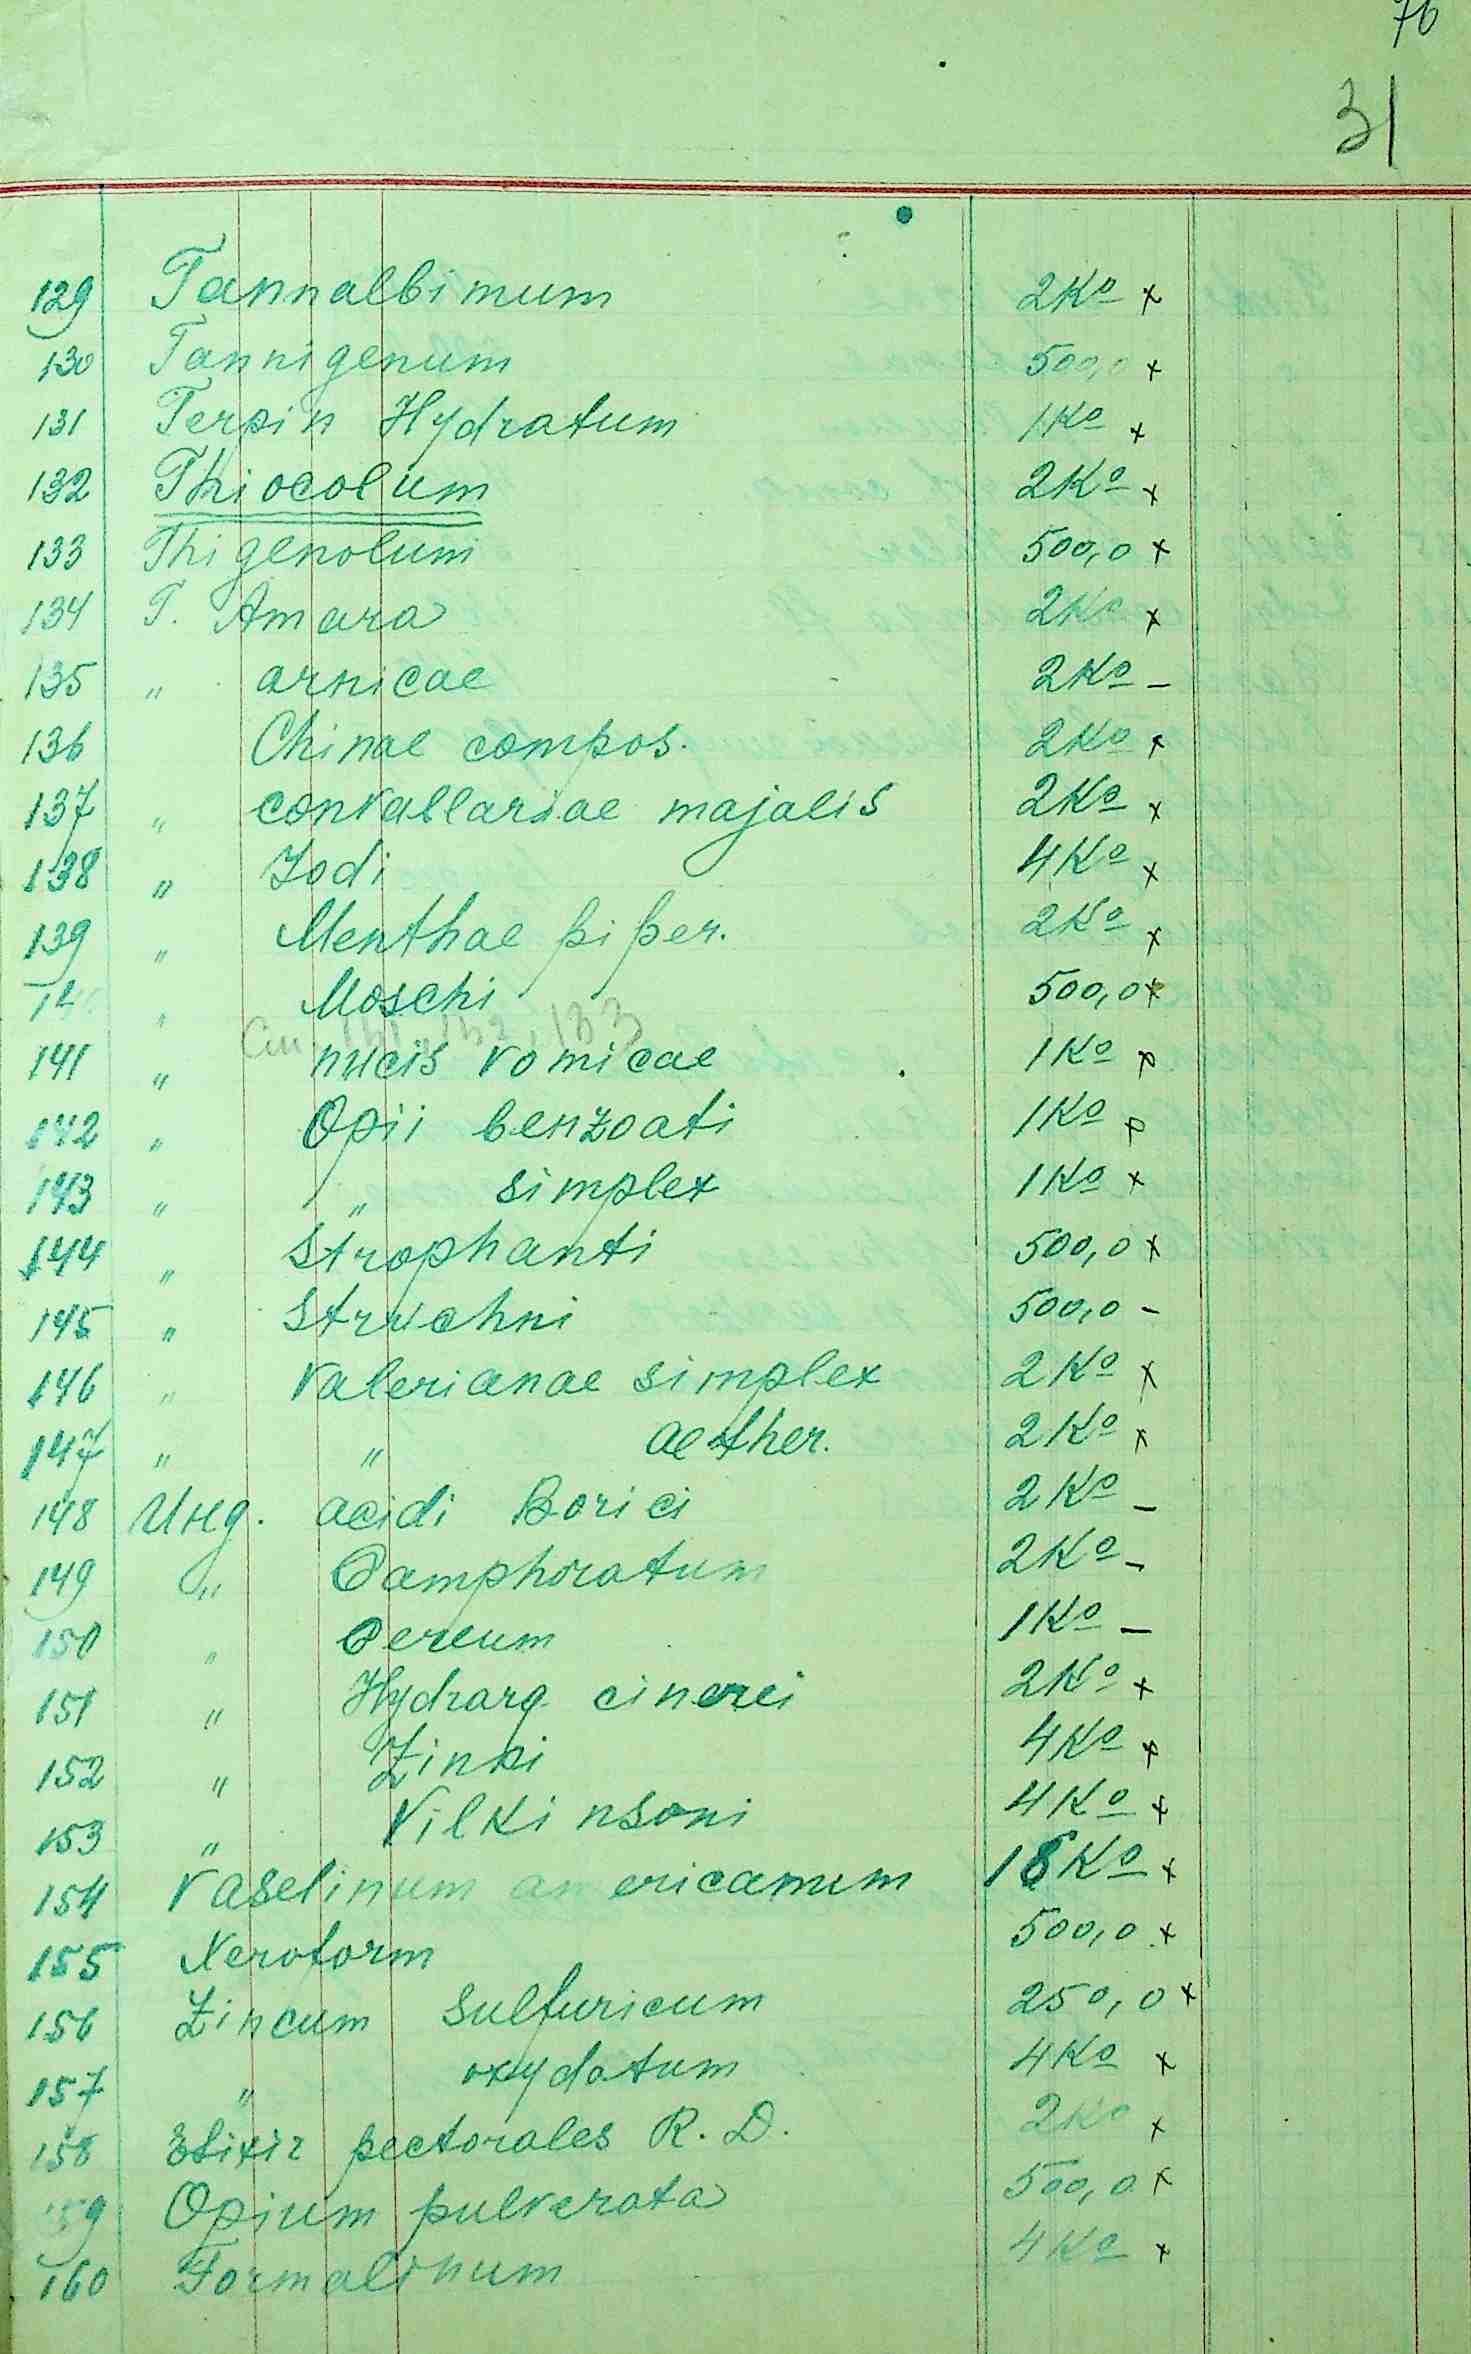 76
31
129 Tannalbinum 2Ko x
130 Tannigenum 500,0 x
131 Terpin Hydratum 1Ko x
132 Thiocolum 2Ko x
133 Thigenolum 500,0 x
134 T. Amara 2Ko x
135 " arnicae 2Ko -
136 Chinae compos. 2Ko x
137 " convallariae majalis 2Ko x
138 " Jodi 4Ko x
139 " Menthae piper. 2Ko x
14 " Moschi 500,0 x
131, 132, 133
141 " nucis vomicae 1Ko x
142 " Opii benzoati 1Ko x
143 " " simplex 1Ko x
144 " Strophanti 500,0 x
145 " Struchni 500,0 -
146 " Valerianae simplex 2Ko x
147 " " aether. 2Ko x
148 Ung. acidi Borici 2Ko -
149 " Camphoratum 2Ko -
150 " Cereum 1Ko -
151 " Hydrarg. cinerei 2Ko x
152 " Zinki 4Ko x
153 " Vilkinsoni 4Ko x
154 Vaselinum americanum 18Ko x
155 Xeroform 500,0 x
156 Zincum Sulfuricum 250,0 x
157 " oxydatum 4Ko x
158 Elixir pectorales R. D. 2Ko x
159 Opium pulverata 500,0 x
160 Formalinum 4Ko x